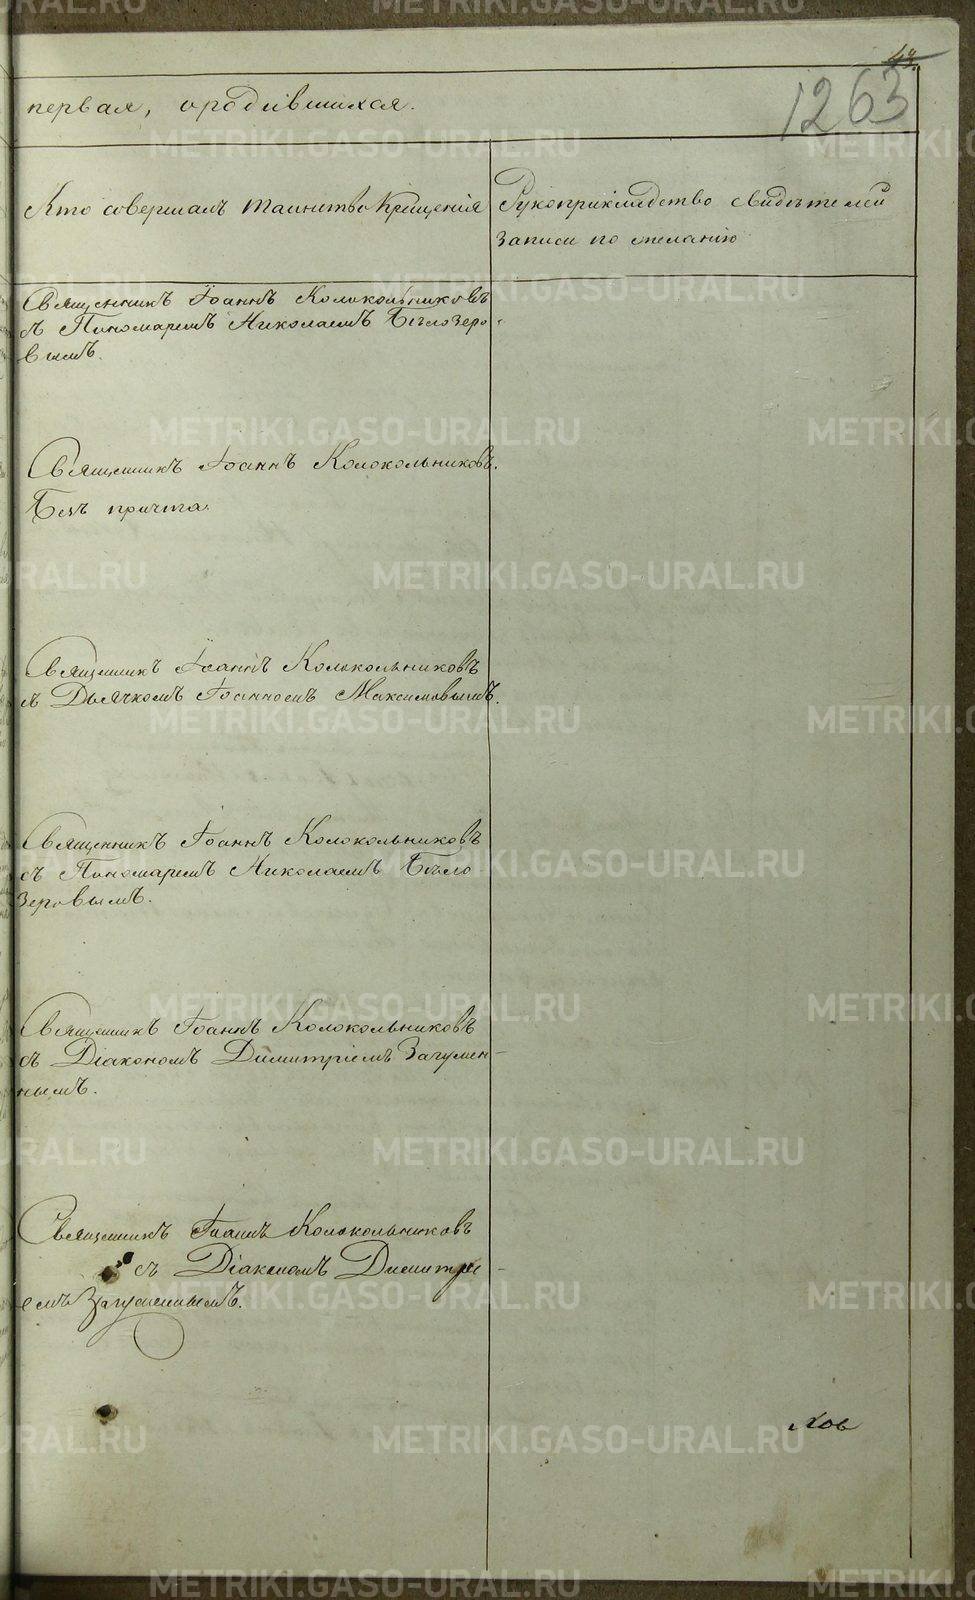 1263
первая, ородившихся.
Кто совершалъ таинство Крещенія
Рукоприкладство свидѣтелей
записи по желанію
Священникъ Іоаннъ Колокольниковъ
съ Пономаремъ Николаемъ Бѣлозеро-
вымъ.
Священникъ Іоаннъ Колокольниковъ.
Безъ причта.
Священникъ Іоаннъ Колокольниковъ
съ Дьячкомъ Іоанномъ Максимовымъ.
Священникъ Іоаннъ Колокольниковъ
съ Пономаремъ Николаемъ Бѣло
зеровымъ.
Священникъ Іоаннъ Колокольниковъ
съ Діакономъ Димитріемъ Загумен-
нымъ.
Священникъ Іоаннъ Колокольниковъ
съ Діакономъ Димитрі-
емъ Загуменнымъ.
METRIKI.GASO-URAL.RU